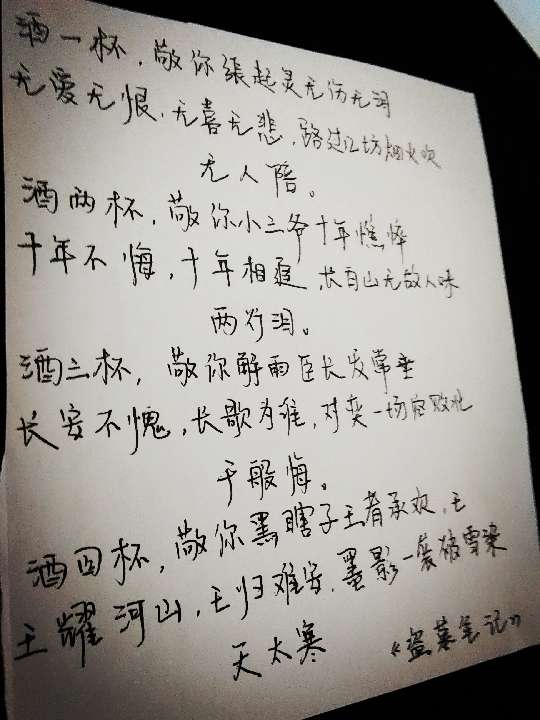 酒一杯，敬你张起灵无伤无泪
无爱无恨，无喜无悲，路过几坊烟火吹
无人陪。
酒两杯，敬你小三爷十年憔悴
十年不悔，十年相追，长白山无故人味
两行泪。
酒三杯，敬你解雨臣长发常垂
长安不愧，长歌为谁，对弈一场定败北
千般悔。
酒四杯，敬你黑瞎子王者承欢，王
王耀河山，王归难安，墨影一袭破雪寒
天太寒
《盗墓笔记》